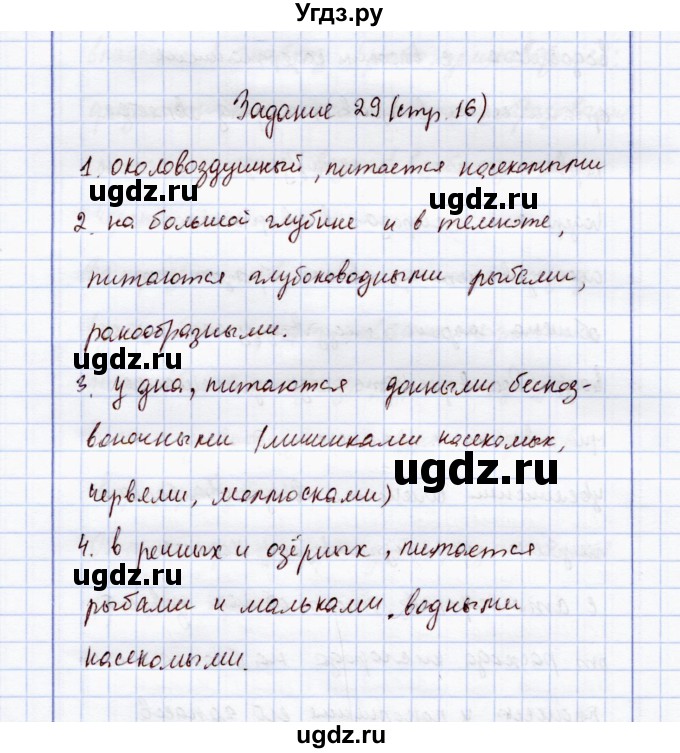 Угдз.ру
Задание 29 (стр. 16)
1. околовоздушный, питается насекомыми
ugdz.ru ugdz.ru
2. на большой глубине и в темноте,
питаются глубоководными рыбами,
ракообразными.
ugdz.ru
3. у дна, питаются донными беспоз-
воночными (личинками насекомых,
ugdz.ru
червями, моллюсками)
4. в речных и озёрных, питается
ugdz.ru
рыбами и мальками, водными
насекомыми.
ugdz.ru